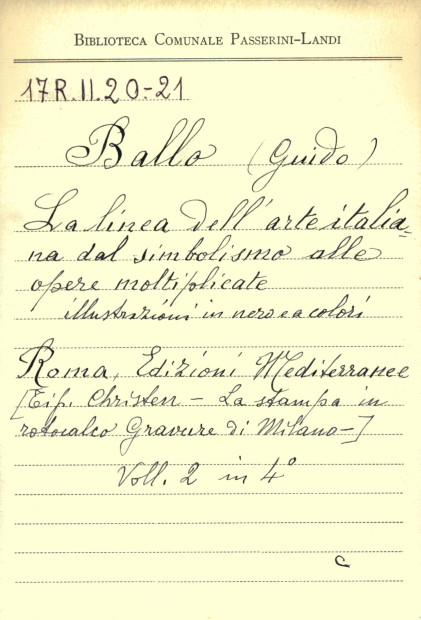 BIBLIOTECA COMUNALE PASSERINI-LANDI
17R.II.20-21
Ballo (Guido)
La linea dell'arte italia=
na dal simbolismo alle
opere moltiplicate
illustrazioni in nero e a colori
Roma, Edizioni Mediterranee
[Tip. Christen - La stampa in
rotocalco Gravure di Milano-]
Voll. 2 in 4°
C